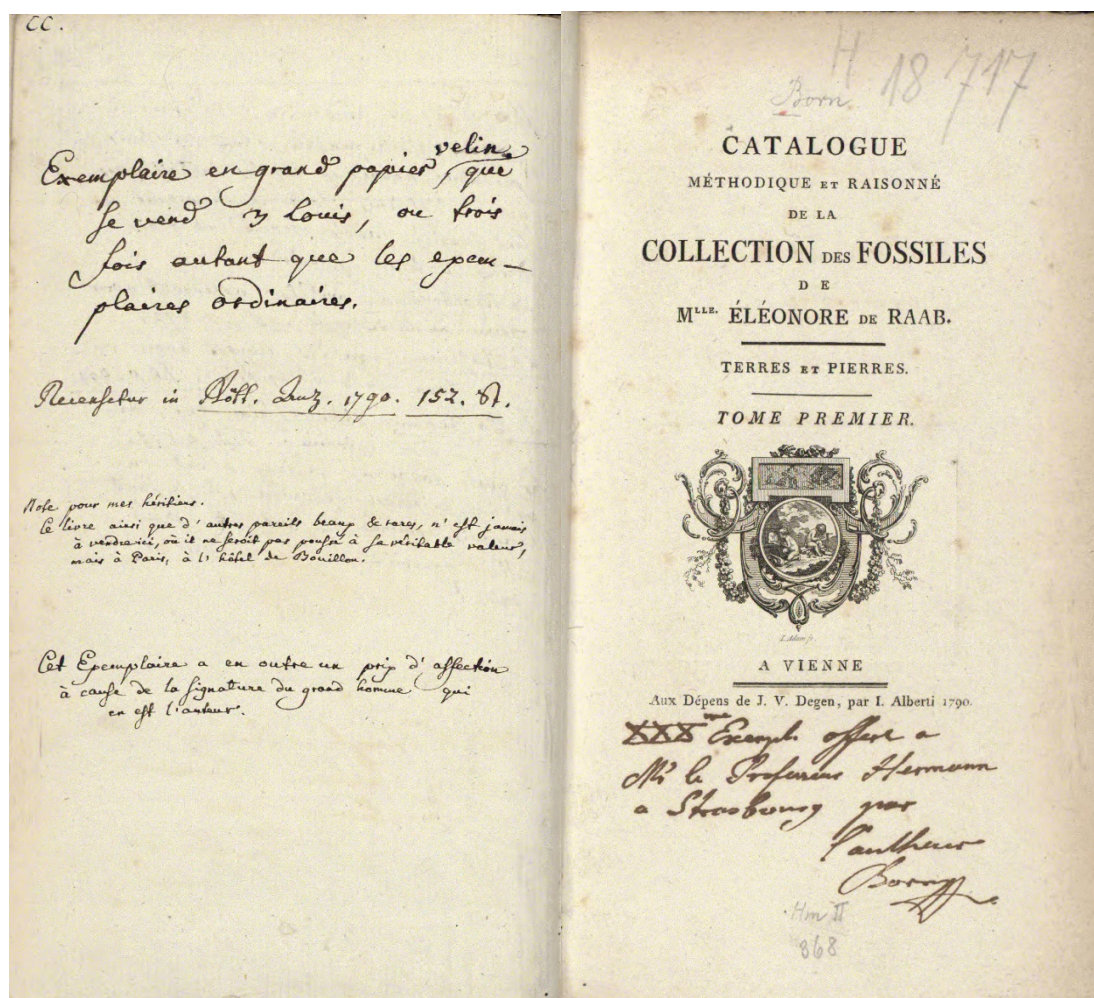 CC.
Exemplaire en grand papier velin, que
se vend 3 Louis, ou trois
fois autant que les exem-
plaires ordinaires.
Recensetur in Gött. Anz. 1790. 152. St.
Note pour mes héritiers.
Ce livre ainsi que d'autres pareils beaux & rares, n'est jamais
à vendre ici, où il ne seroit pas poussé à sa véritable valeur,
mais à Paris, à l'hôtel de Bouillon.
Cet Exemplaire a en outre un prix d'affection
à cause de la signature du grand homme qui
en est l'auteur.
H 18 717
Born
CATALOGUE
MÉTHODIQUE ET RAISONNÉ
DE LA
COLLECTION DES FOSSILES
DE
MLLE. ÉLÉONORE DE RAAB.
TERRES ET PIERRES.
TOME PREMIER.
A VIENNE
Aux Dépens de J. V. Degen, par I. Alberti 1790.
XXXme Exempl. offert a
Mr le Professeur Hermann
a Strasbourg par
l'autheur
Born
Hm II
868